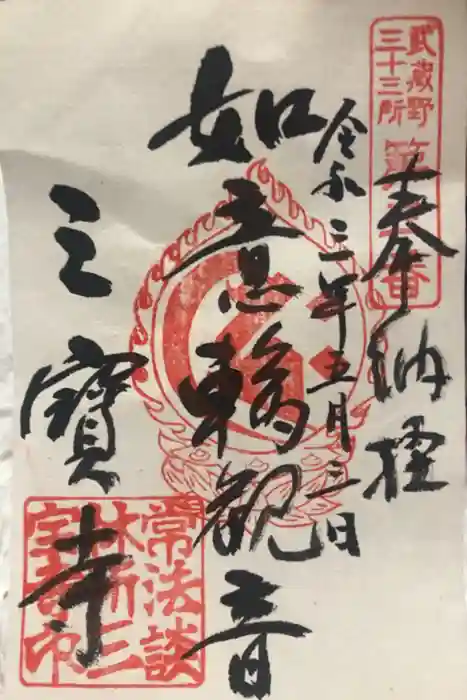 武蔵野
三十三所
第三番
奉納経
令和三年五月三日
如意輪観音
三寶寺
常法談
林所三
宝寺印